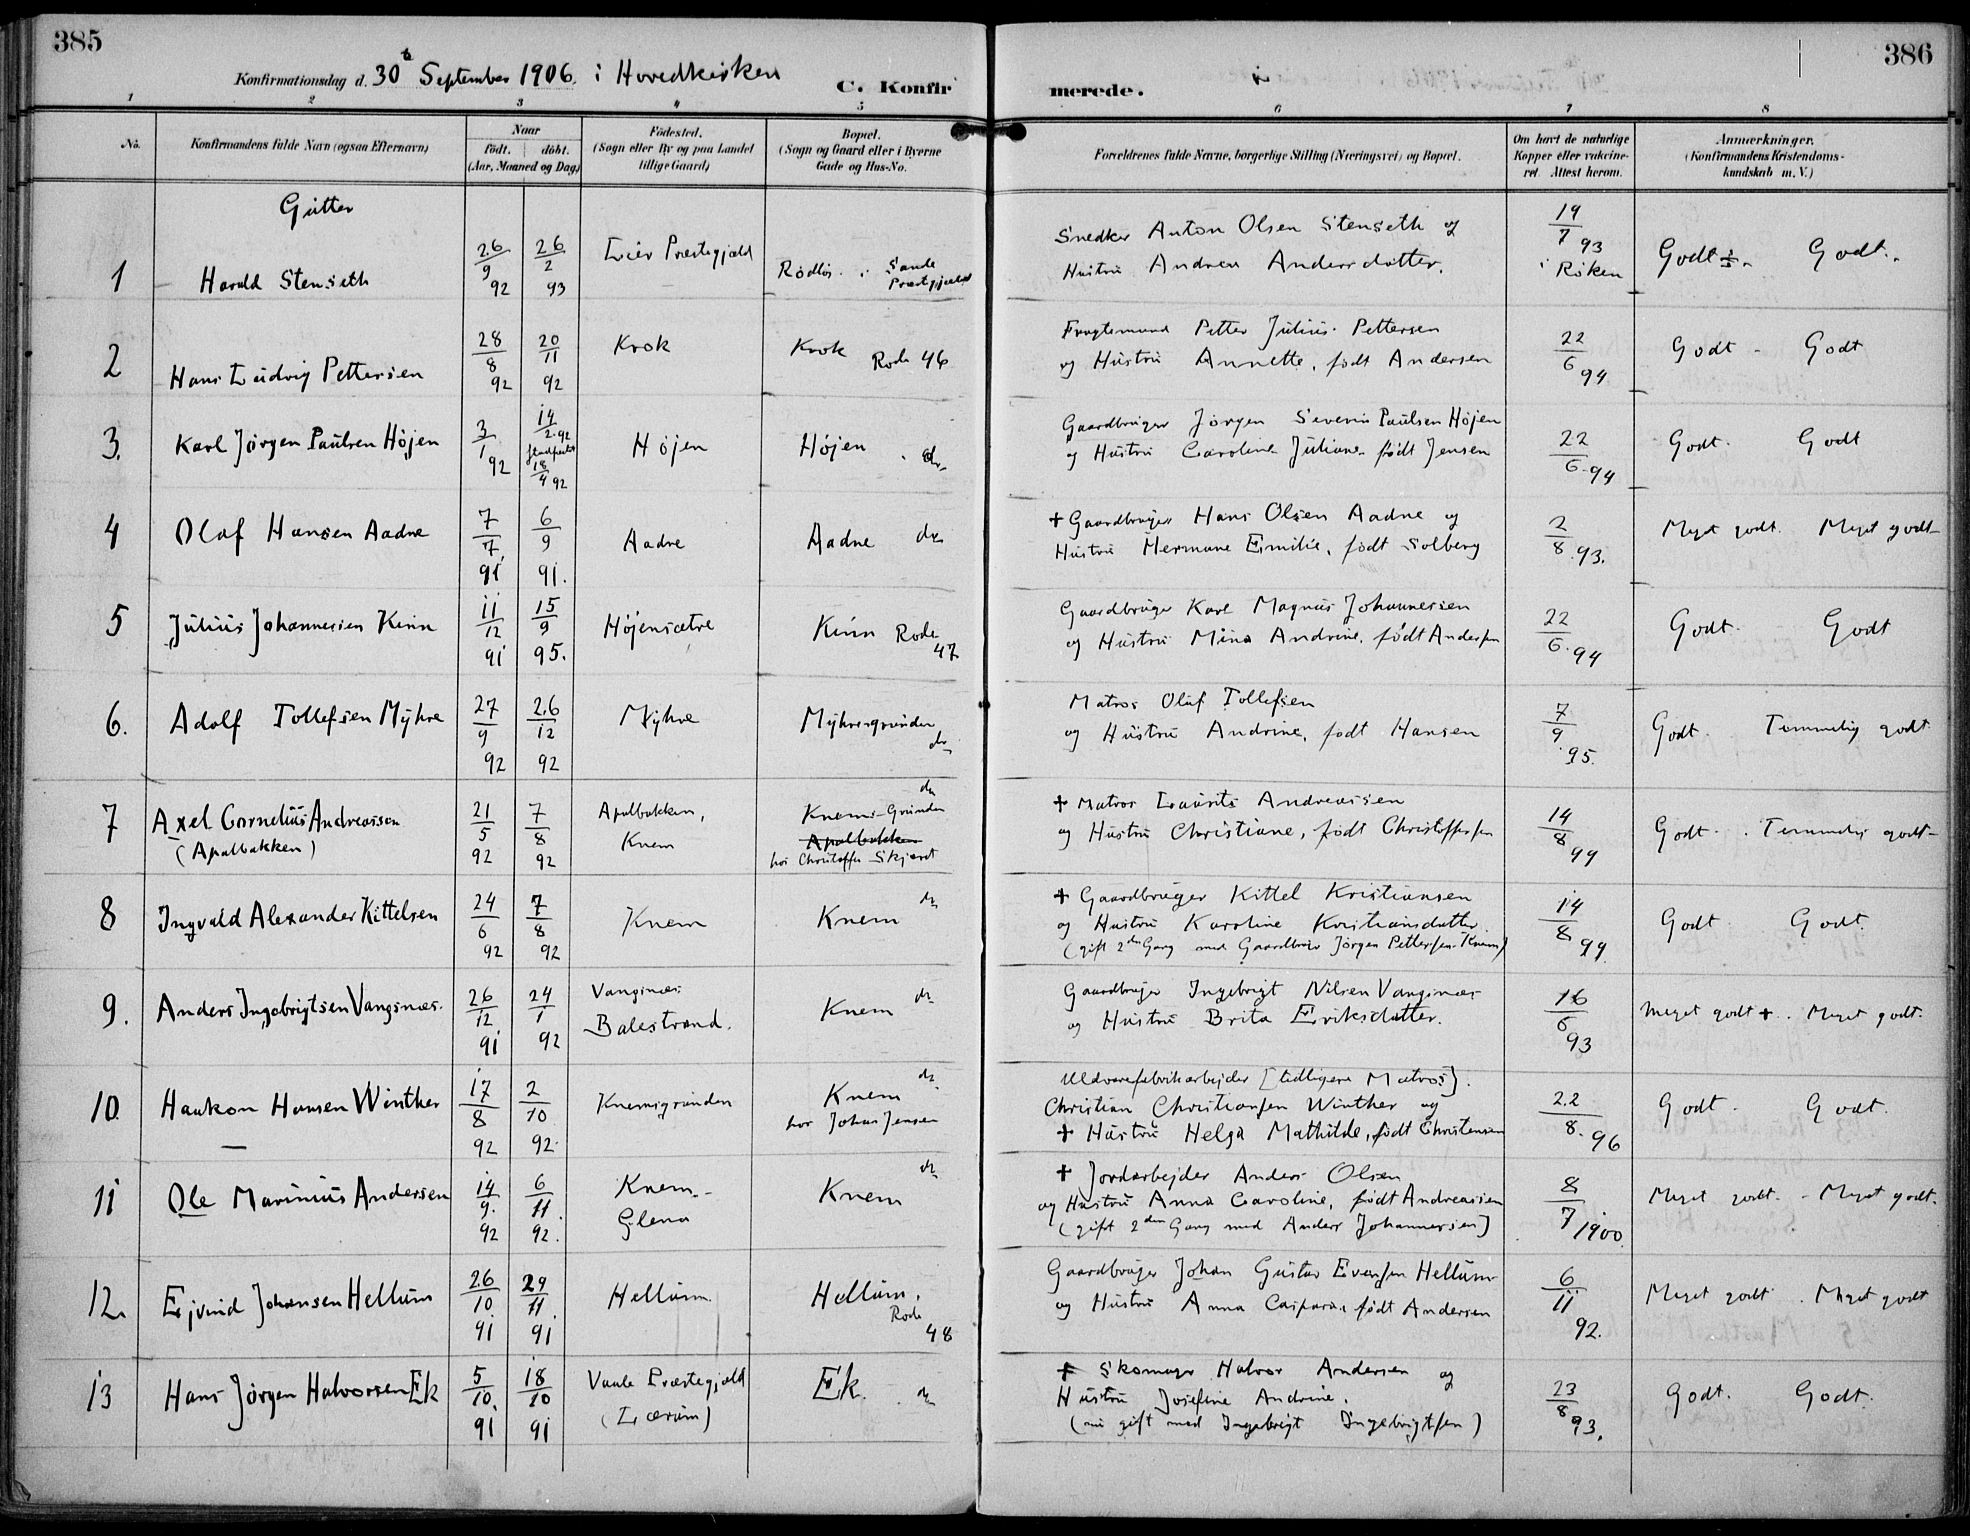 385
386
Konfirmationsdag d. 30te September 1906. i Hovedkirken
C. Konfir
merede.
1 2 3 4 5 6 7 8
No.
Konfirmandens fulde Navn (ogsaa Efternavn)
Naar
födt. döbt.
(Aar, Maaned og Dag)
Födested.
(Sogn eller By og paa Landet
tillige Gaard)
Bopæl.
(Sogn og Gaard eller i Byerne
Gade og Hus-No.
Forældrenes fulde Navne, borgerlige Stilling (Næringsvei) og Bopæl.
Om havt de naturlige
Kopper eller vakcine-
ret. Attest herom.
Anmærkninger.
(Konfirmandens Kristendoms-
kundskab m. V.)
Gutter
1 Harald Stenseth 26/9 92 26/2 93 Lier Præstegjeld i Sande Præstegjeld
Snedker Anton Olsen Stenseth og
Hustru Andrea Andersdatter.
19/7 93 i Röken Godt ÷. Godt.
2 Hans Ludvig Pettersen 28/8 92 20/11 92 Krok Krok Rode 46
Petter Julius Pettersen
og Hustru Annette, født Andersen
22/6 94 Godt - Godt
3. Karl Jørgen Paulsen Höjen 3/1 92 14/2 92 18/4 92 Höjen Höjen do
Gaardbruger Jørgen Severin Paulsen Höjen
og Hustru Caroline Juliane født Jensen
22/6 94 Godt. Godt
4 Olaf Hansen Aadne 7/7 91 6/9 91. Aadne Aadne do
+ Gaardbruger Hans Olsen Aadne og
Hustru Hermane Emilie, født Solberg
2/8 93. Meget godt. Meget godt
5 Julius Johannessen Kinn 11/12 91 15/9 95. Höjensætre Kinn Rode 47
Gaardbruger Karl Magnus Johannessen
og Hustru Mina Andrine, født Andersen
22/6 94 Godt. Godt
6. Adolf Tollefsen Myhre 27/9 92 26/12 92 Myhre Myhresgrunden do
Matros Oluf Tollefsen
og Hustru Andrine, født Hansen
7/9 95. Godt. Temmelig godt.
7 Axel Cornelius Andreassen
(Apalbakken) 21/5 92 7/8 92 Apalbakken, Knem
do Knems-Grunden
Apalbakken
hos Christoffer Skjeret
+ Matros Laurits Andreassen
og Hustru Christiane, født Christoffersen
14/8 99 Godt. Temmelig godt
8 Ingvald Alexander Kittelsen 24/6 92 7/8 92 Knem Knem do
+ Gaardbruger Kittel Kristiansen
og Hustru Karoline Kristiansdatter.
(gift 2den Gang med Gaardbrug. Jörgen Pettersen Knem)
14/8 99. Godt Godt.
9. Anders Ingebrigtsen Vangsnæs. 26/12 91 24/1 92 Vangsnæs Balestrand. Knem do
Gaardbruger Ingebrigt Nilsen Vangsnæs
og Hustru Brita Eriksdatter.
16/6 93 Meget godt +. Meget godt.
10. Haakon Hansen Winther 17/8 92 2/10 92. Knemsgrunden Knem do
hos Johan Jensen
Uldvarefabrikarbejder [tidligere Matros].
Christian Christiansen Winther og
+ Hustru Helga Mathilde, født Christensen
22/8. 96 Godt. Godt.
11 Ole Marinius Andersen 14/9. 92 6/11 92. Knem - Glena Knem do
+ Jordarbejder Anders Olsen
og Hustru Anna Caroline, født Andreassen
(gift 2den Gang med Anders Johannessen)
8/7 1900. Meget godt. - Meget godt.
12. Ejvind Johansen Hellum 26/10 91 29/11 91 Hellum. Hellum. Rode 48
Gaardbruger Johan Gustav Evensen Hellum
og Hustru Anna Caspara, født Andersen
6/11 92. Meget godt. Meget godt
13 Hans Jørgen Halvorsen Ek 5/10. 91 18/10 91 Vaale Præstegjeld
(Lærum) Ek. do
+ Skomager Halvor Andersen og
Hustru Josefine Andrine.
(nu gift med Ingebrigt Ingebrigtsen)
23/8 93. Godt. Godt.